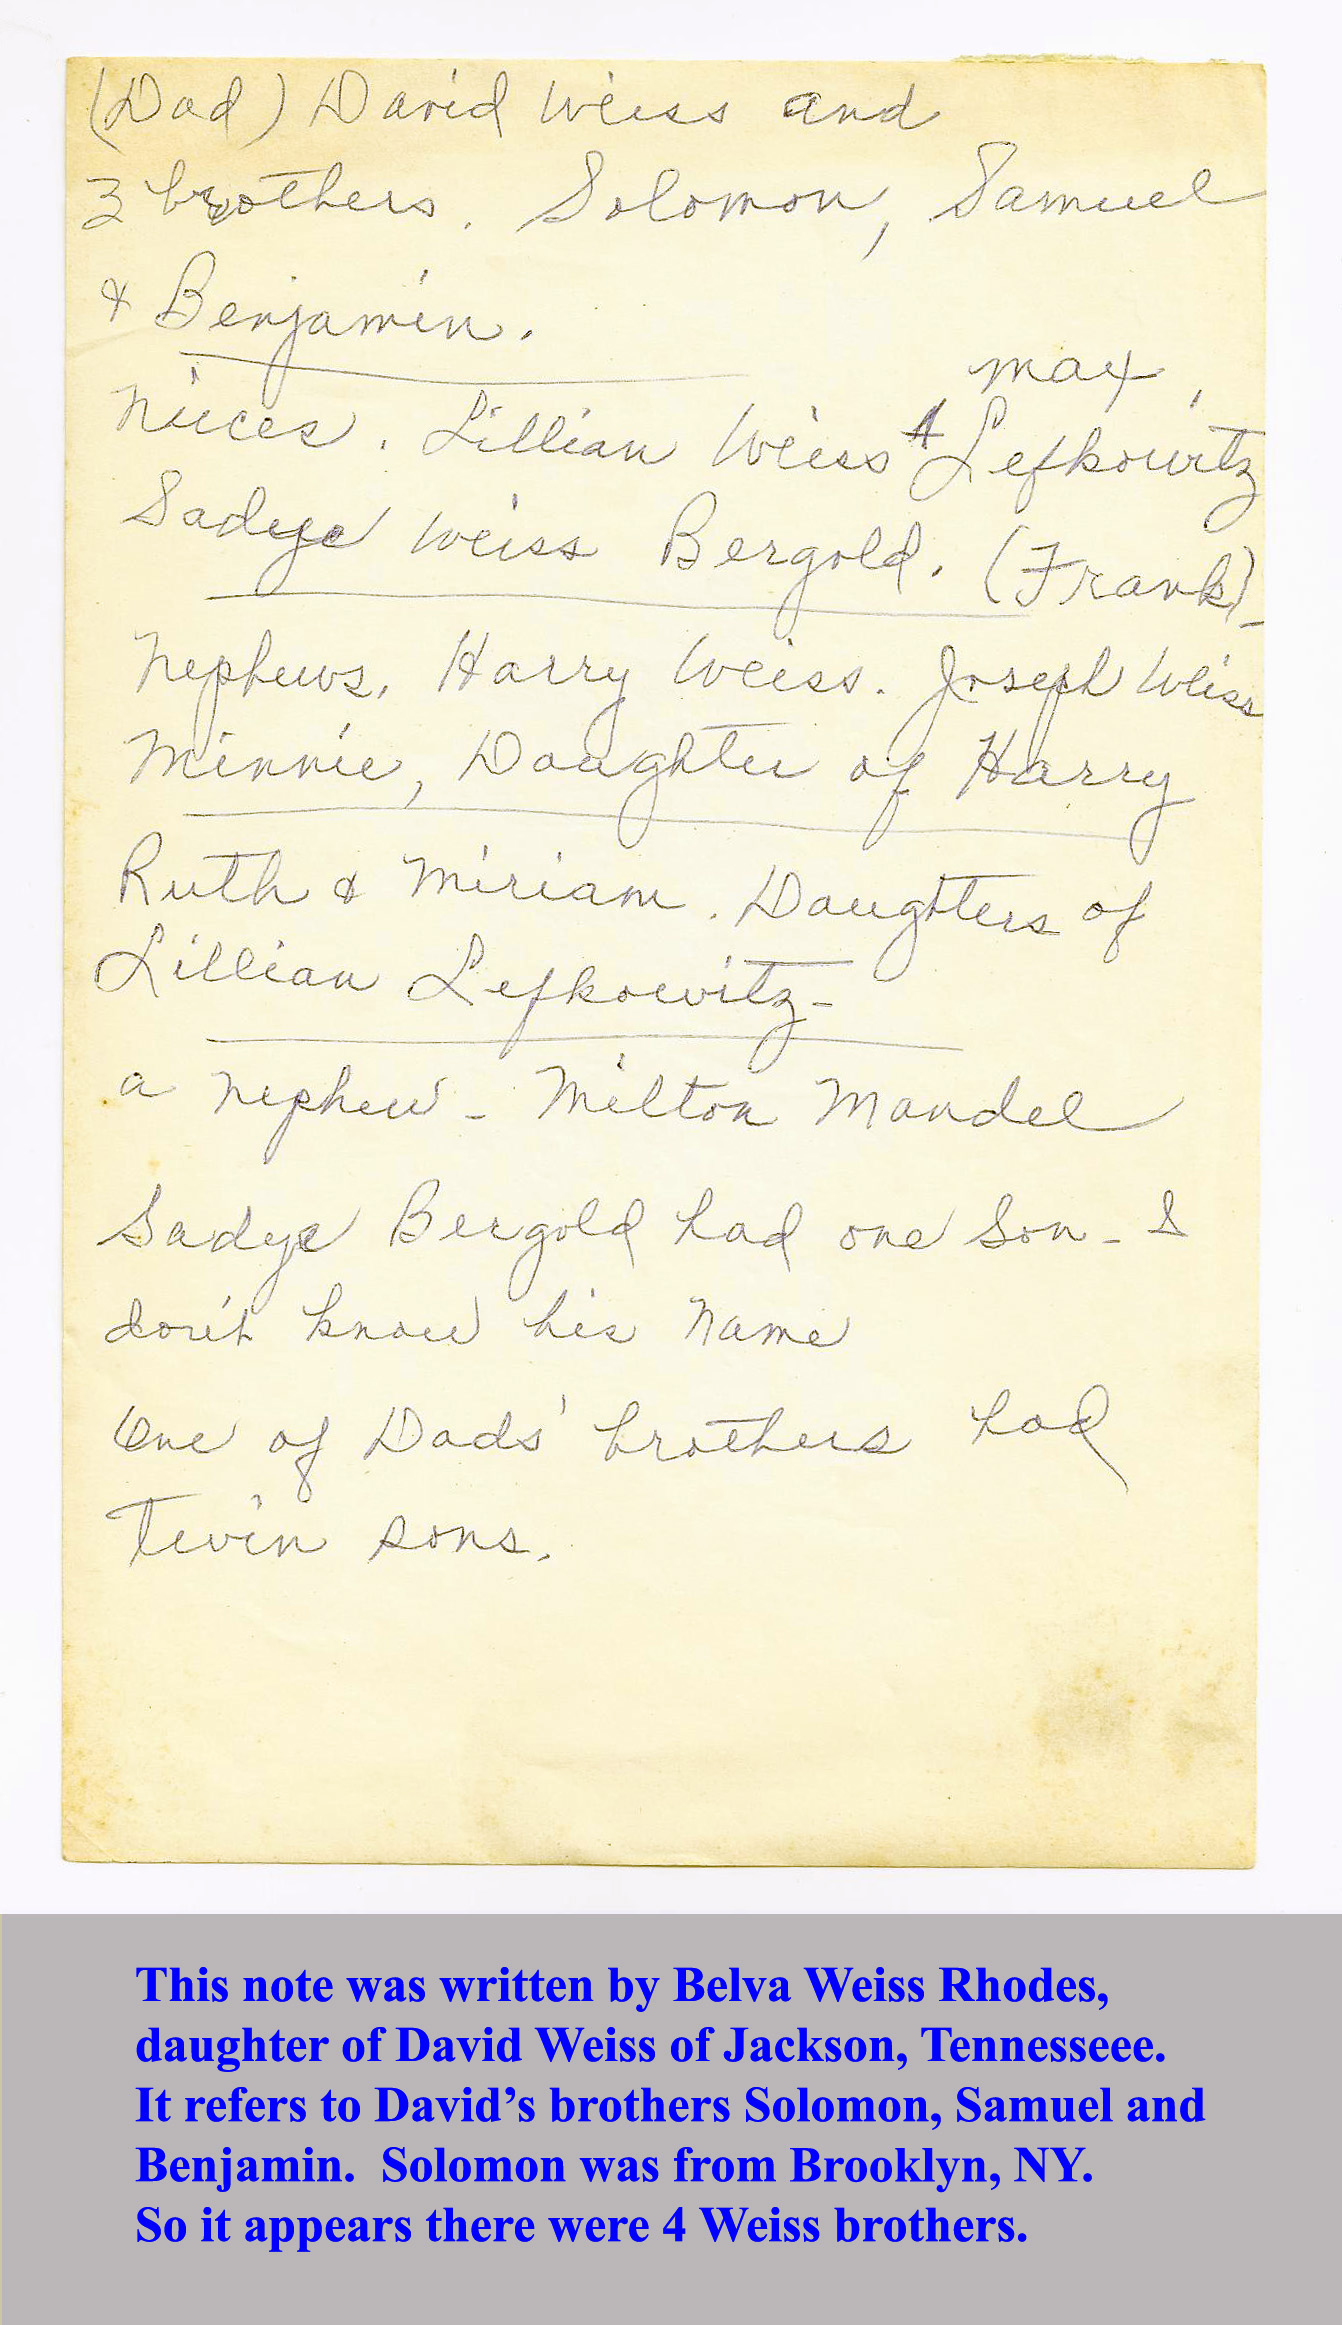 (Dad) David Weiss and
3 brothers. Solomon, Samuel
& Benjamin.
max,
Nieces. Lillian Weiss ^ Lefkowitz
Sadye Weiss Bergold. (Frank)-
Nephews. Harry Weiss. Joseph Weiss
Minnie, Daughter of Harry
Ruth & Miriam. Daughters of
Lillian Lefkowitz-
a nephew - Milton Mandel
Sadye Bergold had one son - I
don't know his name
One of Dads' brothers had
Twin sons.
This note was written by Belva Weiss Rhodes,
daughter of David Weiss of Jackson, Tennesseee.
It refers to David’s brothers Solomon, Samuel and
Benjamin.  Solomon was from Brooklyn, NY.
So it appears there were 4 Weiss brothers.